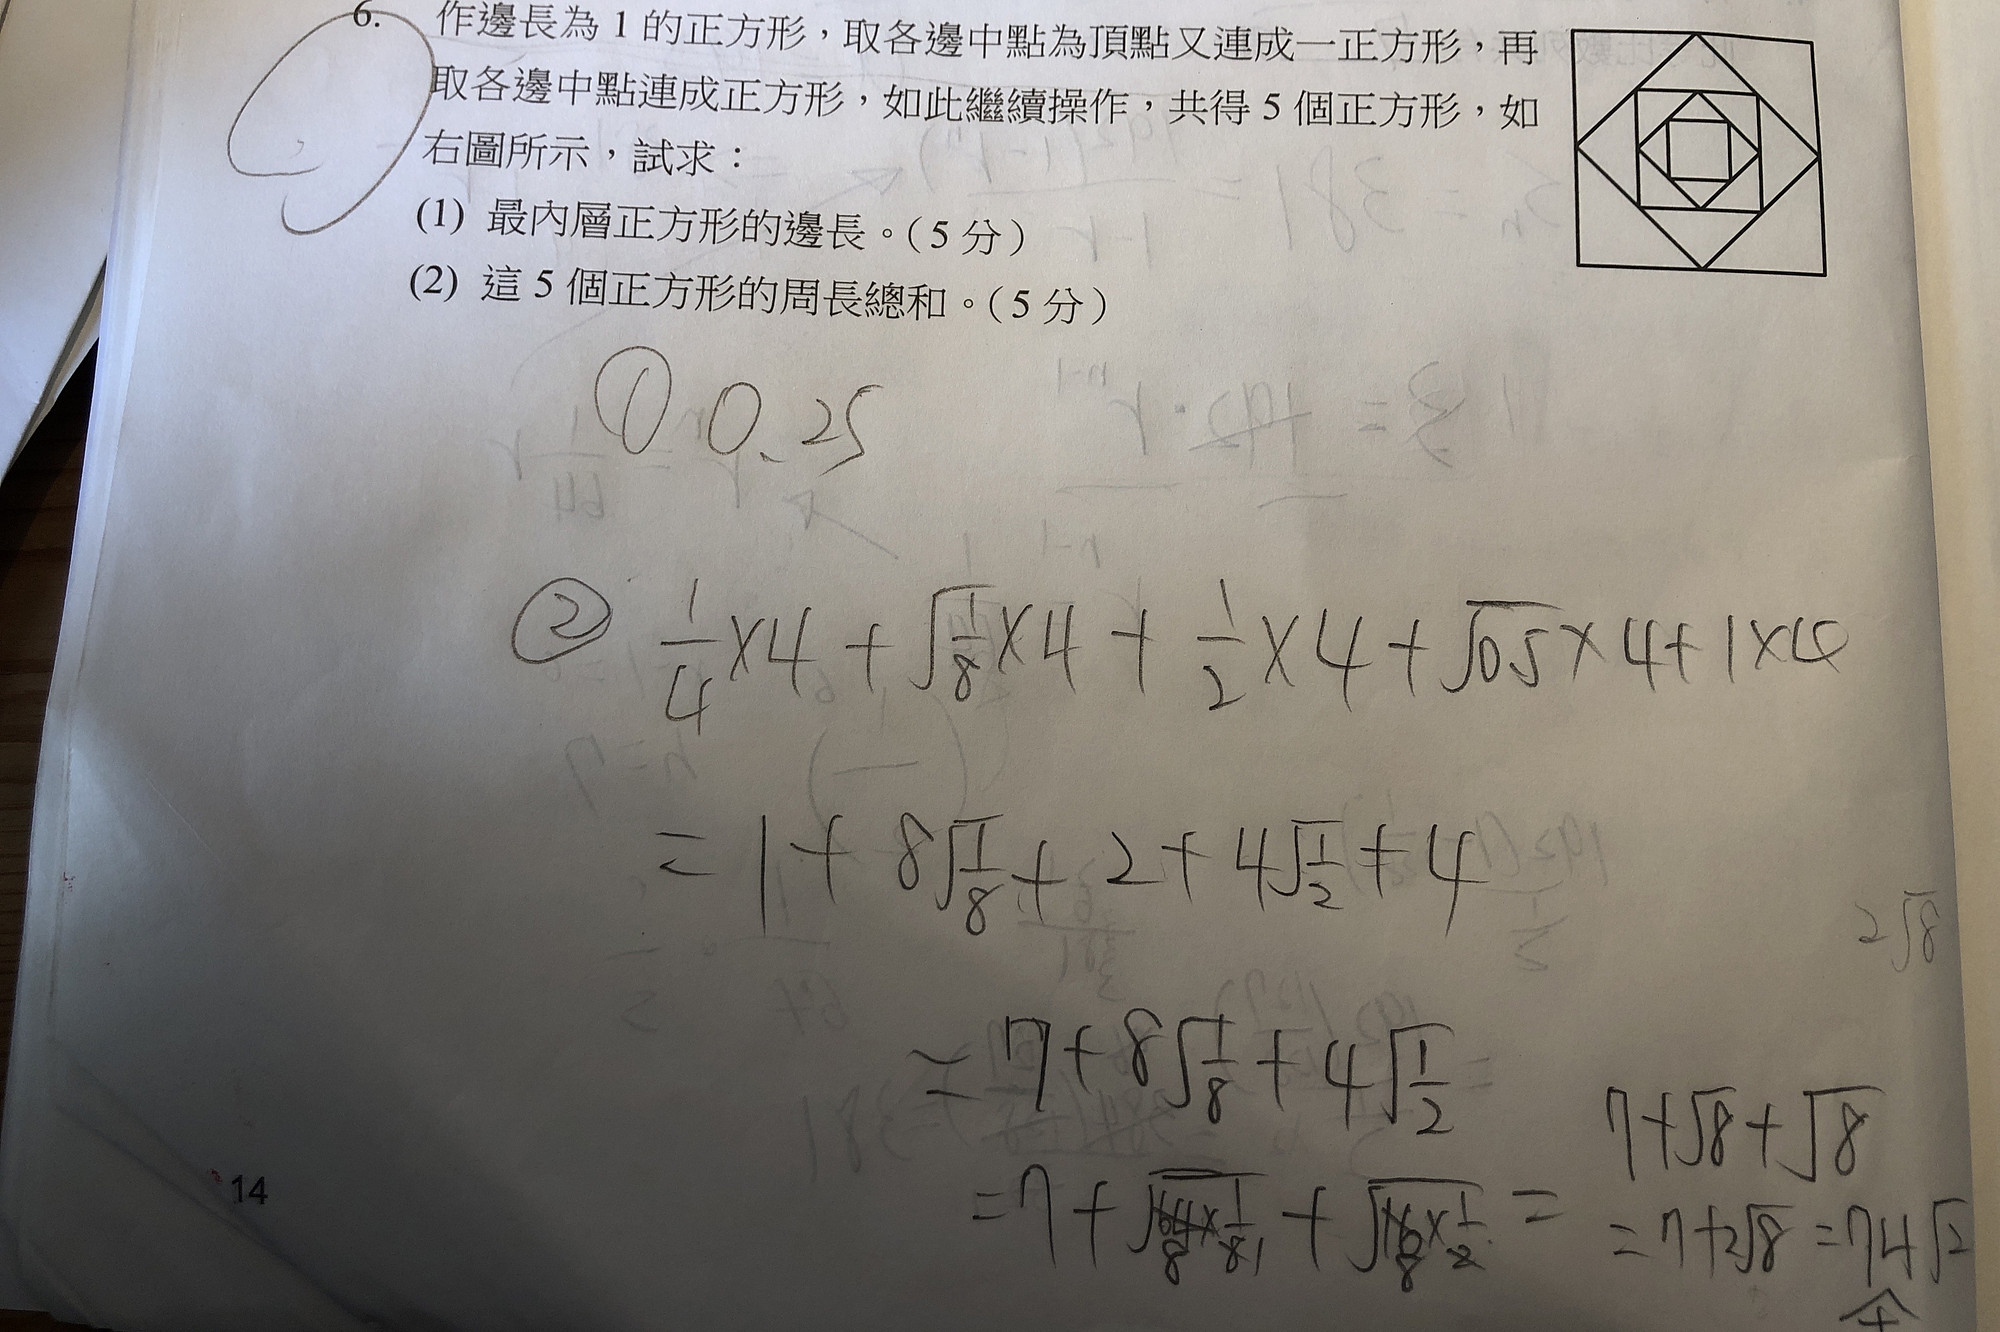 6. 作邊長為 1 的正方形，取各邊中點為頂點又連成一正方形，再
取各邊中點連成正方形，如此繼續操作，共得 5 個正方形，如
右圖所示，試求：
(1) 最內層正方形的邊長。（5 分）
(2) 這 5 個正方形的周長總和。（5 分）
① 0.25
② 1/4×4+√(1/8)×4+1/2×4+√05×4+1×4
=1+8√(1/8)+2+4√(1/2)+4
2√8
=7+8√(1/8)+4√(1/2)
7+√8+√8
=7+
=7+2√8=74√2
+
14